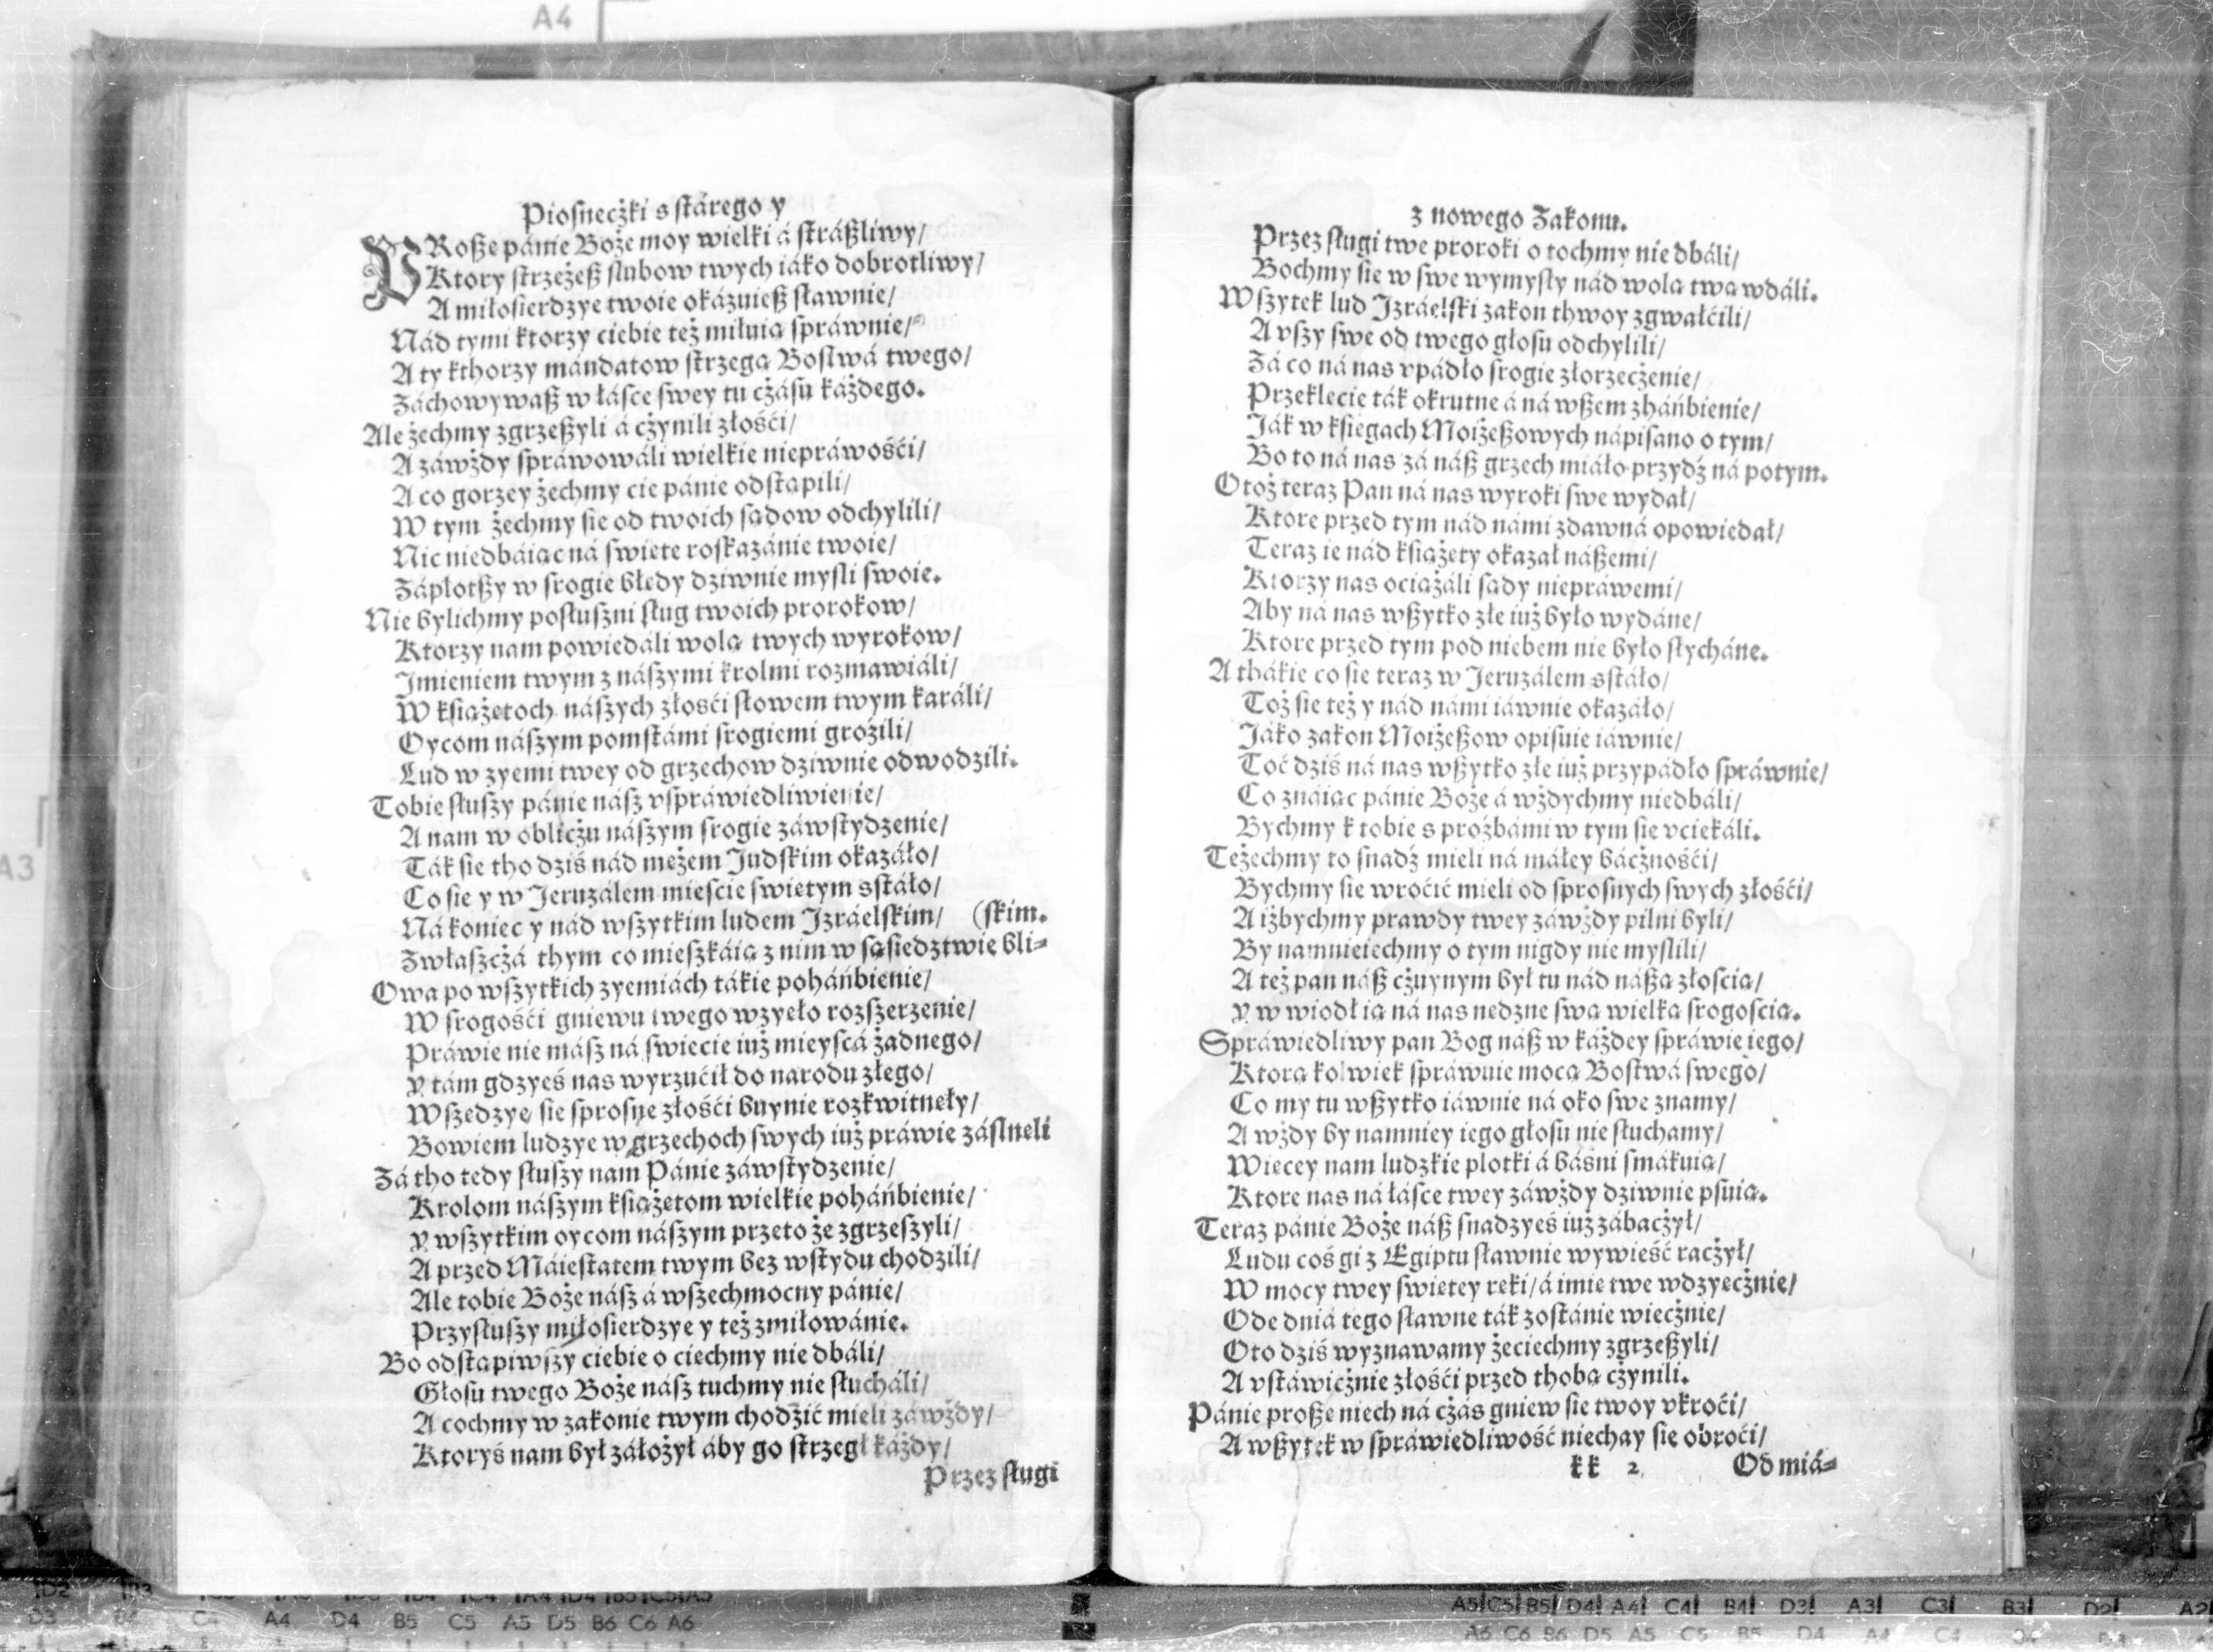 Piosnecżki s stárego y
PRoßę pánie Boże moy wielki á stráßliwy/
Ktory strzeżeß slubow twych iáko dobrotliwy/
A miłosierdzye twoie okázuieß sławnie/
Nád tymi ktorzy ciebie też miłuią spráwnie/
A ty kthorzy mándatow strzegą Bostwá twego/
Záchowywaß w łásce swey tu cżásu káżdego.
Ale żechmy zgrzeßyli á cżynili złośći/
A záwżdy spráwowáli wielkie niepráwośći/
A co gorzey żechmy cie pánie odstąpili/
W tym żechmy sie od twoich sądow odchylili/
Nic niedbáiąc ná swięte roskazánie twoie/
Záplotßy w srogie błędy dziwnie mysli swoie.
Nie bylichmy posłuszni sług twoich prorokow/
Ktorzy nam powiedáli wolą twych wyrokow/
Imieniem twym z nászymi krolmi rozmawiáli/
W książętoch nászych złosći słowem twym karáli/
Oycom nászym pomstámi srogiemi grozili/
Lud w zyemi twey od grzechow dziwnie odwodzili.
Tobie słuszy pánie nász vspráwiedliwienie/
A nam w oblicżu nászym srogie záwstydzenie/
Ták sie tho dziś nád mężem Judskim okazáło/
Co sie y w Jeruzálem mieście swiętym sstáło/
Ná koniec y nád wszytkim ludem Izráelskim/ (skim.
Zwłaszcżá thym co mieszkáią z nim w sąsiedztwie bli-
Owa po wszytkich zyemiách tákie poháńbienie/
W srogośći gniewu twego wzyęło rozszerzenie/
Práwie nie mász ná swiecie iuż mieyscá żadnego/
Y tám gdzyeś nas wyrzućił do narodu złego/
Wszędzye sie sprosne złośći buynie rozkwitnęły/
Bowiem ludzye w grzechoch swych iuż práwie zásnęli
Zá tho tedy słuszy nam Pánie záwstydzenie/
Krolom nászym książętom wielkie poháńbienie/
Y wszytkim oycom nászym przeto że zgrzeszyli/
A przed Máiestatem twym bez wstydu chodzili/
Ale tobie Boże nász á wszechmocny pánie/
Przysłuszy miłosierdzye y też zmiłowánie.
Bo odstąpiwszy ciebie o ciechmy nie dbáli/
Głosu twego Boże nász tuchmy nie słucháli/
A cochmy w zakonie twym chodzić mieli záwżdy/
Ktoryś nam był záłożył áby go strzegł káżdy/
Przez sługi
z nowego Zakonu.
Przez sługi twe proroki o tochmy nie dbáli/
Bochmy sie w swe wymysły nád wolą twą wdáli.
Wszytek lud Izráelski zakon thwoy zgwałćili/
A vszy swe od twego głosu odchylili/
Zá co ná nas vpádło srogie złorzecżenie/
Przeklęcie ták okrutne á ná wßem zháńbienie/
Ják w księgach Moiżeßowych nápisano o tym/
Bo to ná nas zá náß grzech miáło przydź ná potym.
Otoż teraz Pan ná nas wyroki swe wydał/
Ktore przed tym nád námi zdawná opowiedał/
Teraz ie nád książęty okazał náßemi/
Ktorzy nas ociążáli sądy niepráwemi/
Aby ná nas wßytko złe iuż było wydáne/
Ktore przed tym pod niebem nie było słycháne.
A thákie co sie teraz w Jeruzálem sstáło/
Toż sie też y nád námi iáwnie okazáło/
Jáko zakon Moiżeßow opisuie iáwnie/
Toć dziś ná nas wßytko złe iuż przypádło spráwnie/
Co znáiąc pánie Boże á wżdychmy niedbáli/
Bychmy k tobie s proźbámi w tym sie vciekáli.
Teżechmy to snadź mieli ná máłey bácżnośći/
Bychmy sie wroćić mieli od sprosnych swych złośći/
A iżbychmy prawdy twey záwżdy pilni byli/
By namnieiechmy o tym nigdy nie myslili/
A też pan náß cżuynym był tu nád náßą złoscią/
Y w wiodł ią ná nas nędzne swą wielką srogoscią.
Spráwiedliwy pan Bog náß w káżdey spráwie iego/
Ktorą kolwiek spráwuie mocą Bostwá swego/
Co my tu wßytko iáwnie ná oko swe znamy/
A wżdy by namniey iego głosu nie słuchamy/
Więcey nam ludzkie plotki á báśni smákuią/
Ktore nas ná łásce twey záwżdy dziwnie psuią.
Teraz pánie Boże náß snadzyeś iuż zábacżył/
Ludu coś gi z Egiptu sławnie wywieść racżył/
W mocy twey swiętey ręki/ á imię twe wdzyęcżnie/
Ode dniá tego sławne ták zostánie wiecżnie/
Oto dziś wyznawamy żeciechmy zgrzeßyli/
A vstáwicżnie złośći przed thobą cżynili.
Pánie proßę niech ná cżás gniew sie twoy vkroći/
A wßytek w spráwiedliwość niechay sie obroći/
kk 2 Od miá-
A4
A3
D3 C4 A4 D4 B5 C5 A5 D5 B6 C6 A6
A5 C5 B5 D4 A4 C4 B4 D3 A3 C3 B3 D2 A2
A6 C6 B6 D5 A5 C5 B5 D4 A4 C4